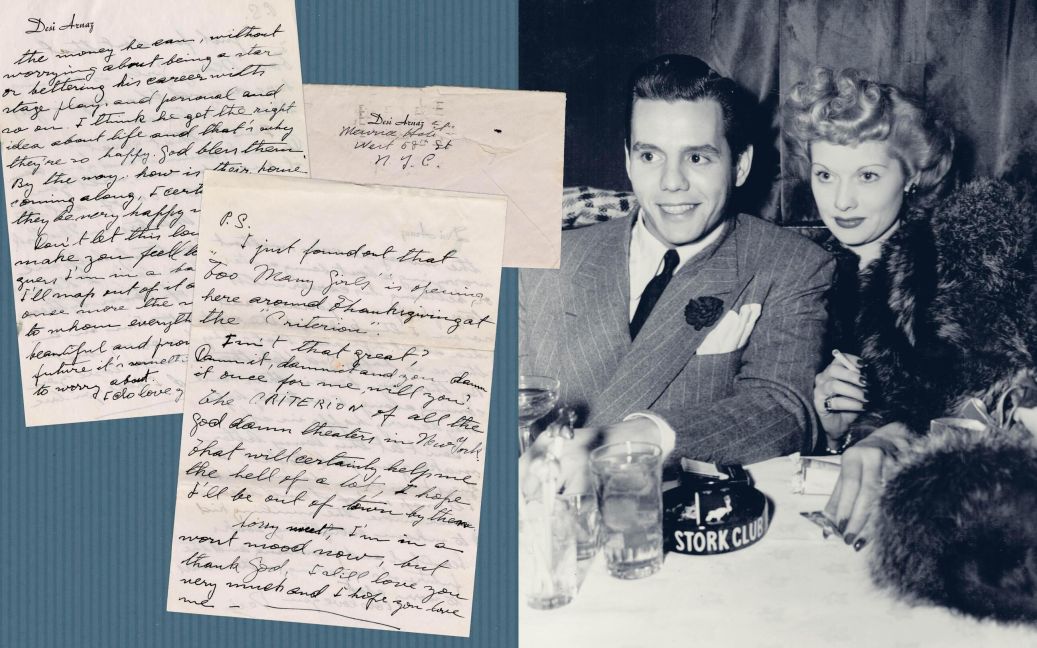 Desi Arnaz
the money he can, without
worrying about being a star
or bettering his career with
stage play, and personal and
so on. I think he got the right
idea about life and that's why
they're so happy. God bless them.
By the way, how is their home
coming along, I cert
they be very happy
Don't let this
make you feel
I'm in a
I'll snap out of it
once more the
to whom everyth
beautiful and
future it's
to worry about
I do love y
Desi Arnaz
West 68th St
N.Y.C.
P.S.
I just found out that
"Too Many Girls" is opening
here around Thanksgiving at
the "Criterion".
Isn't that great?
Damn it, damn it and you damn
it once for me, will you?
The CRITERION of all the
god damn theaters in New York
that will certainly help me
the hell of a lot, I hope
I'll be out of town by then
Sorry sweet, I'm in a
worst mood now, but
thank God, I still love you
very much and I hope you love
me —
STORK CLUB